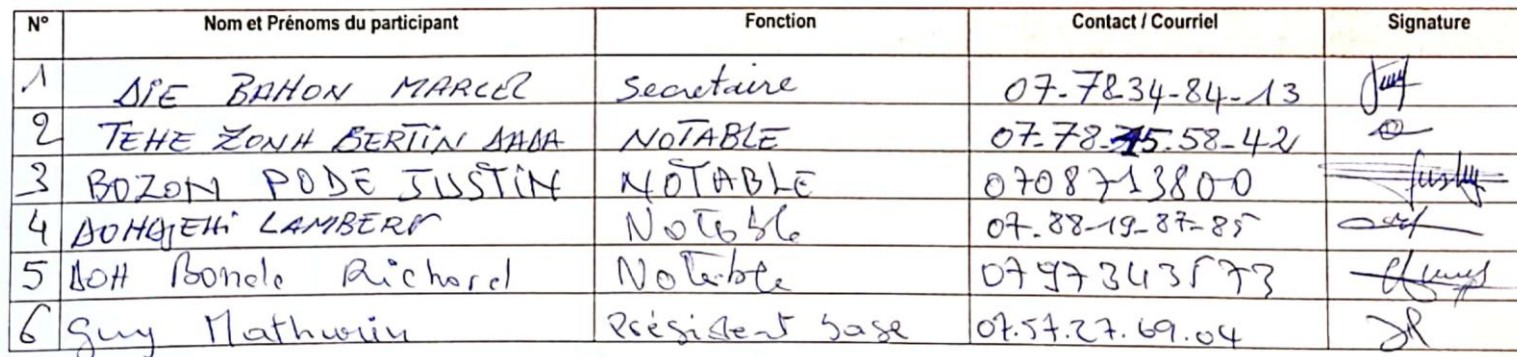 N° Nom et Prénoms du participant Fonction Contact / Courriel Signature
1 DIE BAHON MARCEL Secretaire 07-7834-84-13
2 TEHE ZONH BERTIN DADA NOTABLE 07-78-15.58-42
3 BOZON PODE JUSTIN NOTABLE 0708713800
4 LAMBERT Notable 07-88-19-87-85
5 DOH Bonde Richard Notable 0797343573
6 Guy Mathurin Président base 07.57.27.69.04